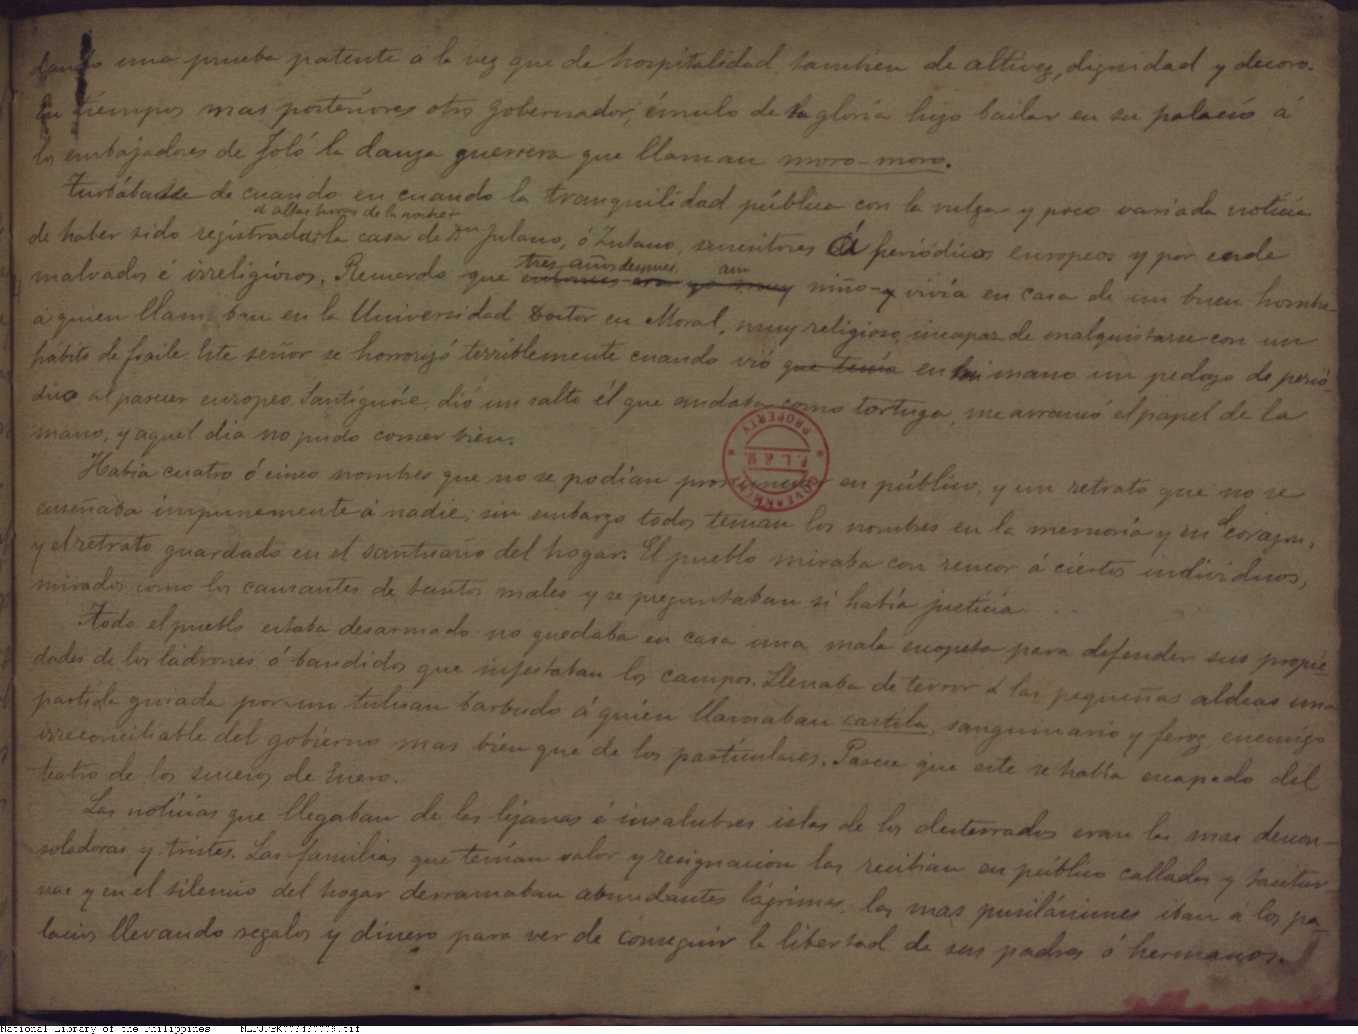 dando una prueba patente á la vez que de hospitalidad, tambien de altivez, dignidad y decoro.
En tiempos mas posteriores otro gobernador, émulo de su gloria hizo bailar en su palacio á
los embajadores de Joló la danza guerrera que llaman moro-moro.
Turbábase de cuando en cuando la tranquilidad pública con la vulgar y poco variada noticia
á altas horas de la noche
de haber sido registrada la casa de Dn Fulano, ó Zutano, suscritores á periódicos europeos y por ende
tres años despues, aun
malvados é irreligiosos. Recuerdo que entonces era yo muy niño y vivía en casa de un buen hombre
á quien llamaban en la Universidad Doctor en Moral, muy religioso, incapaz de malquistarse con un
hábito de fraile. Este señor se horrorizó terriblemente cuando vió que tenía en mi mano un pedazo de perió-
dico al parecer europeo. Santiguóse, dió un salto él que andaba como tortuga, me arrancó el papel de la
mano, y aquel dia no pudo comer bien.
Había cuatro ó cinco nombres que no se podían pronunciar en público, y un retrato que no se
enseñaba impunemente á nadie; sin embargo todos tenían los nombres en la memoria y en corazon,
y el retrato guardado en el santuario del hogar. El pueblo miraba con rencor á ciertos individuos,
mirados como los causantes de tantos males y se preguntaban si había justicia...
Todo el pueblo estaba desarmado: no quedaba en casa una mala escopeta para defender sus propie-
dades de los ladrones ó bandidos que infestaban los campos. Llenaba de terror á las pequeñas aldeas una
partida guiada por un tulisan barbudo á quien llamaban castila, sanguinario y feroz, enemigo
irreconciliable del gobierno mas bien que de los particulares. Parece que este se había escapado del
teatro de los sucesos de Enero.
Las noticias que llegaban de las lejanas é insalubres islas de los desterrados eran las mas descon-
soladoras y tristes. Las familias que tenían valor y resignacion las recibian en público callados y tacitur-
nas y en el silencio del hogar derramaban abundantes lágrimas, las mas pusilánimes iban á los pa-
lacios llevando regalos y dinero para ver de conseguir la libertad de sus padres ó hermanos.
GOVERNMENT
P. L. & M.
PROPERTY
National Library of the Philippines